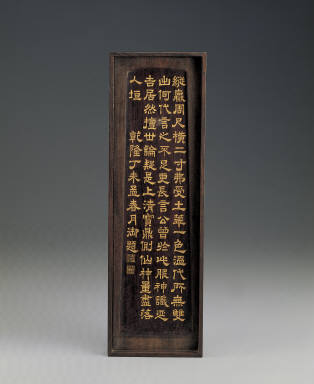 縱嬴周尺橫二寸弗受土華一色溫代所無雙
幽何代言之不足更長言公曾始此服神識近
吉居然擅世論疑是上清寶鼎側仙神量盡落
人垣　乾隆丁未孟春月御題